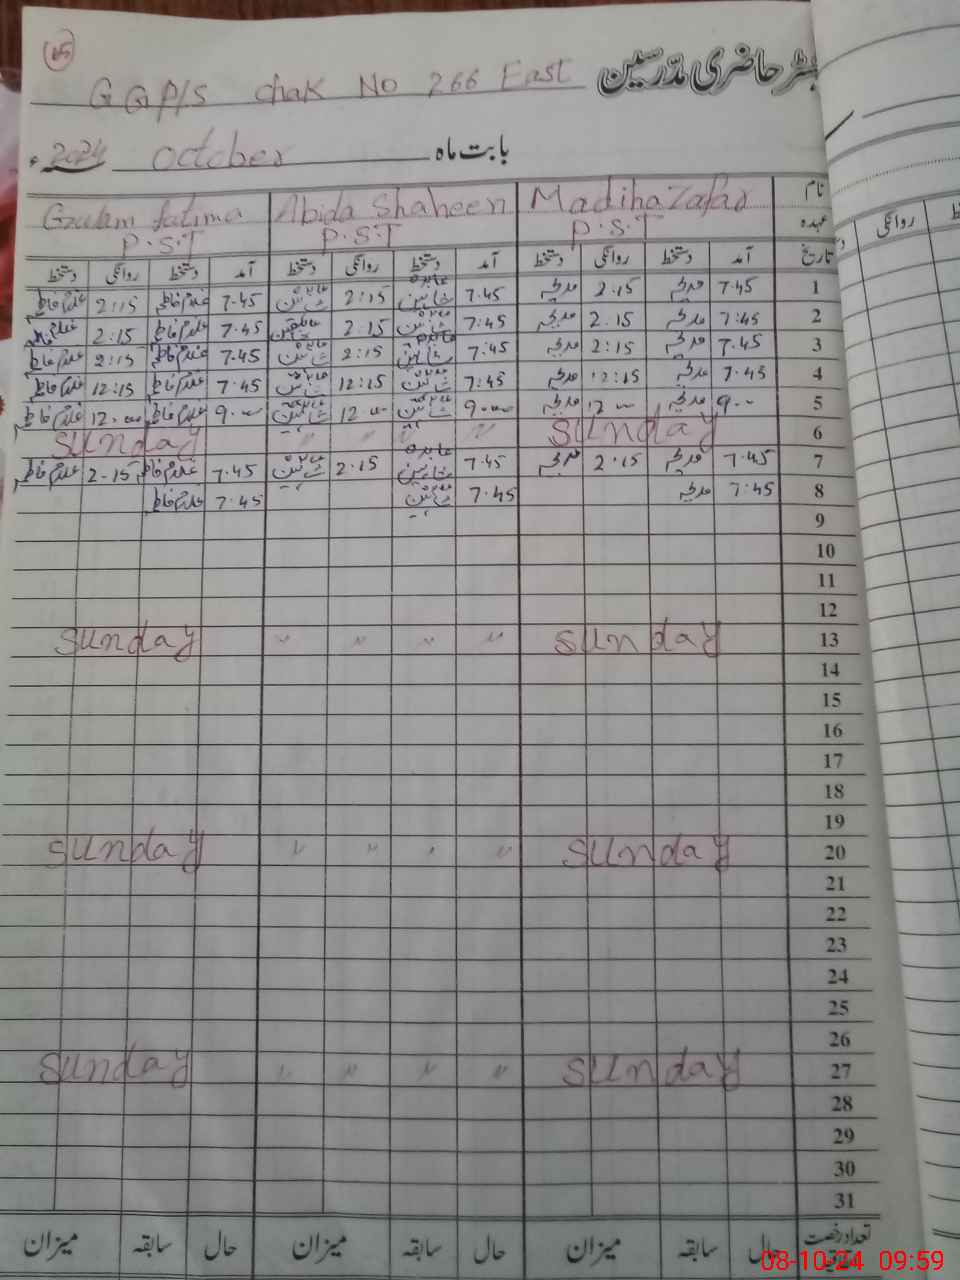 65
GGP/S chak No 266 East رجسٹر حاضری مدرسین
بابت ماہ October 2024ء
نام Madiha Zafar Abida Shaheen Gulam fatima
عہدہ P.S.T P.S.T P.S.T
تاریخ آمد دستخط روانگی دستخط آمد دستخط روانگی دستخط آمد دستخط روانگی دستخط
روانگی
1 7.45 مدیحہ 2.15 مدیحہ 7.45 عابدہ شاہین 2:15 عابدہ شاہین 7.45 غلام فاطمہ 2:15 غلام فاطمہ
2 7:45 مدیحہ 2.15 مدیحہ 7:45 عابدہ شاہین 2.15 عابدہ شاہین 7.45 غلام فاطمہ 2.15
3 7.45 مدیحہ 2:15 مدیحہ 7:45 عابدہ شاہین 2:15 عابدہ شاہین 7.45 غلام فاطمہ 2:15 غلام فاطمہ
4 7.45 مدیحہ 12:15 مدیحہ 7:45 عابدہ شاہین 12:15 عابدہ شاہین 7.45 غلام فاطمہ 12:15 غلام فاطمہ
5 9.00 مدیحہ 12 00 مدیحہ 9.00 عابدہ شاہین 12.00 عابدہ شاہین 9.00 غلام فاطمہ 12.00 غلام فاطمہ
6 Sunday 〃 〃 〃 〃 Sunday
7 7.45 مدیحہ 2.15 مدیحہ 7.45 عابدہ شاہین 2.15 عابدہ شاہین 7.45 غلام فاطمہ 2.15 غلام فاطمہ
8 7:45 مدیحہ 7.45 عابدہ شاہین 7.45 غلام فاطمہ
9
10
11
12
13 Sunday 〃 〃 〃 〃 Sunday
14
15
16
17
18
19
20 Sunday 〃 〃 〃 〃 Sunday
21
22
23
24
25
26
27 Sunday 〃 〃 〃 〃 Sunday
28
29
30
31
تعداد رخصت حال سابقہ میزان حال سابقہ میزان حال سابقہ میزان
08-10-24 09:59